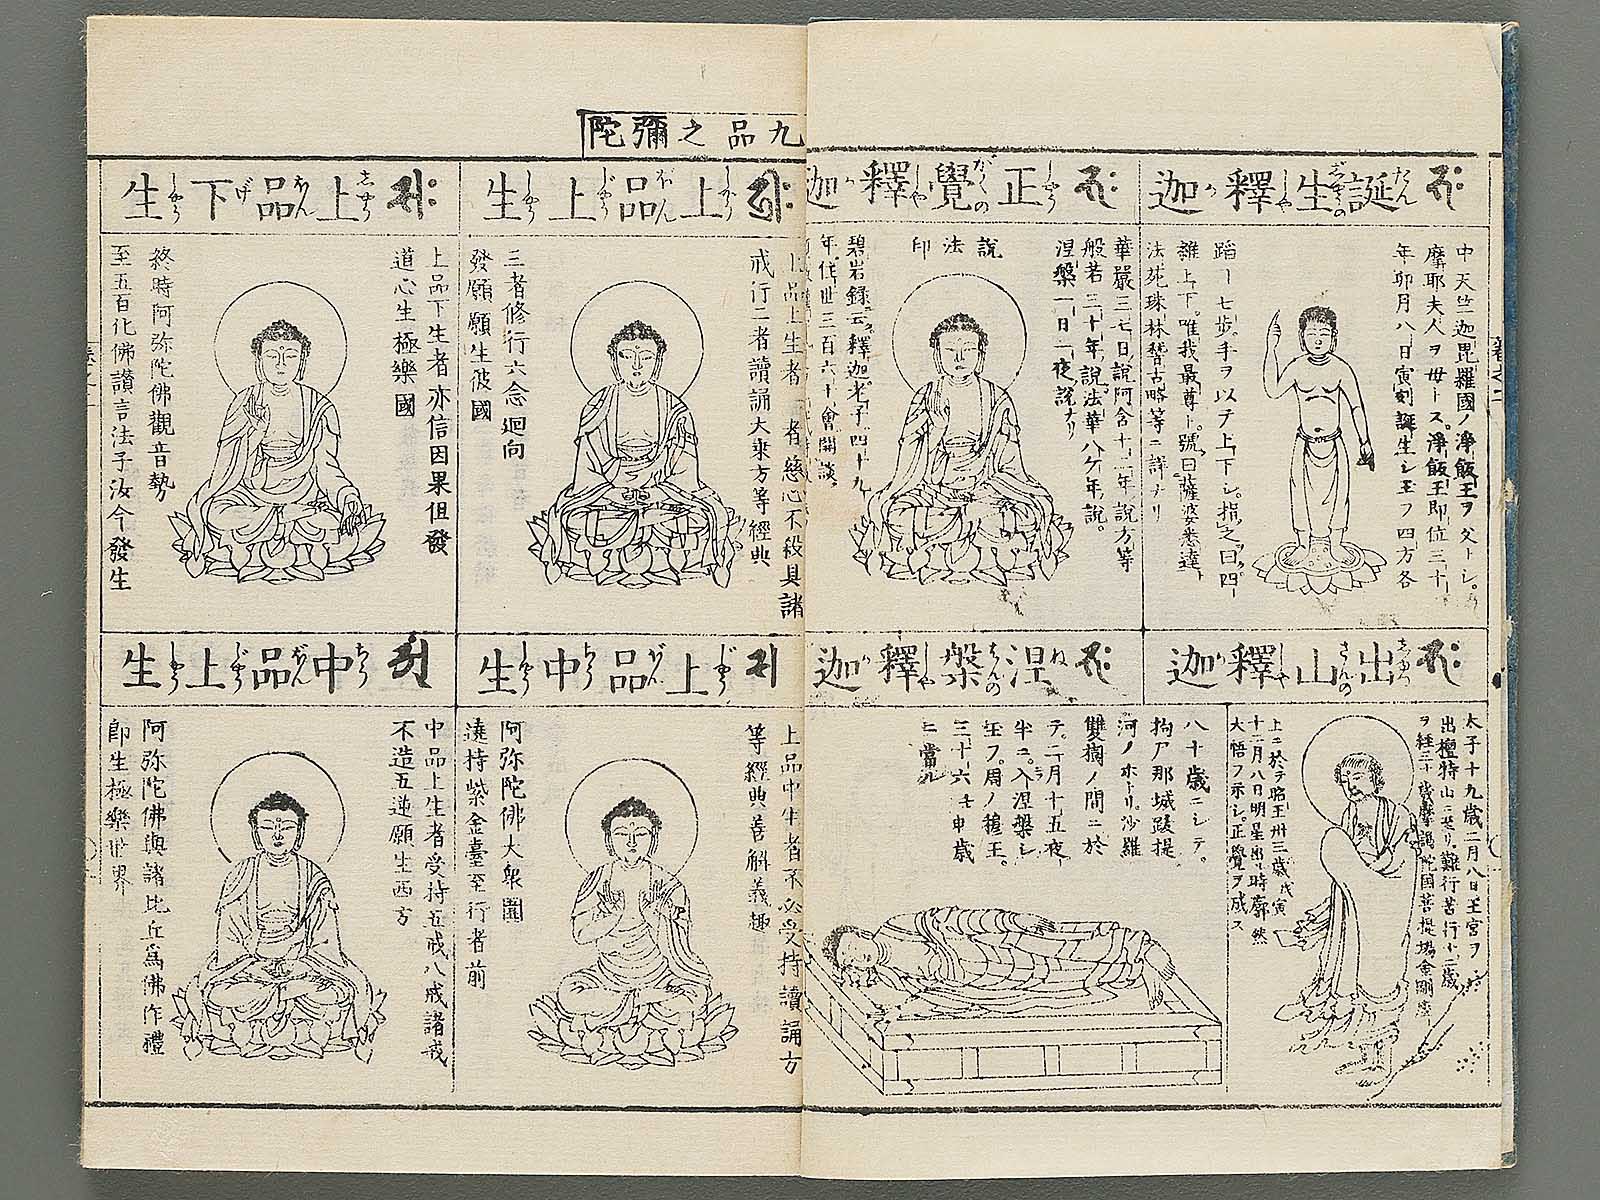 誕生釋迦
たんじやうのしやか
中天竺迦毘羅國ノ淨飯王ヲ父トシ。
摩耶夫人ヲ母トス。淨飯王即位三十
年卯月八日寅刻誕生シ玉フ四方各
蹈ー七歩。手ヲ以テ上下シ。指之曰四ー
維上下。唯我最尊ト。號曰薩婆悉達
法苑珠林稽古略等ニ詳ナリ
正覺釋迦
しやうがくのしやか
華嚴三七日說阿含十二年說方等
般若三十年說法華八ケ年說。
涅槃一日一夜說ナリ
說法印
碧岩錄云釋迦老子四十九
年住世三百六十會開談
出山釋迦
しゆつさんのしやか
太子十九歲二月八日王宮ヲ
出檀特山ニ至リ難行苦行十二歲
ヲ経三十歲摩謁陀國菩提場金剛座
上ニ於テ昭王卅三歲戊寅
十二月八日明星出ル時廓然
大悟フ示シ。正覺ヲ成ス
涅槃釋迦
ねはんのしやか
八十歲ニシテ。
拘尸那城跋提
河ノホトリ。沙羅
雙樹ノ間ニ於
テ。二月十五夜
半ニ。入涅槃シ
玉フ。周ノ穆王。
三十六壬申歲
ニ當ル
九品之彌陀
上品上生
じやうぼんじやうしやう
上品上生者一者慈心不殺具諸
戒行二者讀誦大乘方等經典
三者修行六念迴向
發願願生彼國
上品下生
じやうぼんげしやう
上品下生者亦信因果但發
道心生極樂國
終時阿弥陀佛觀音勢
至五百化佛讃言法子汝今發生
上品中生
じやうぼんちうしやう
上品中生者不必受持讀誦方
等經典善解義趣
阿弥陀佛大衆圍
遶持紫金臺至行者前
中品上生
ちうぼんじやうしやう
中品上生者受持五戒八戒諸戒
不造五逆願生西方
阿弥陀佛與諸比丘爲佛作禮
即生極樂世界